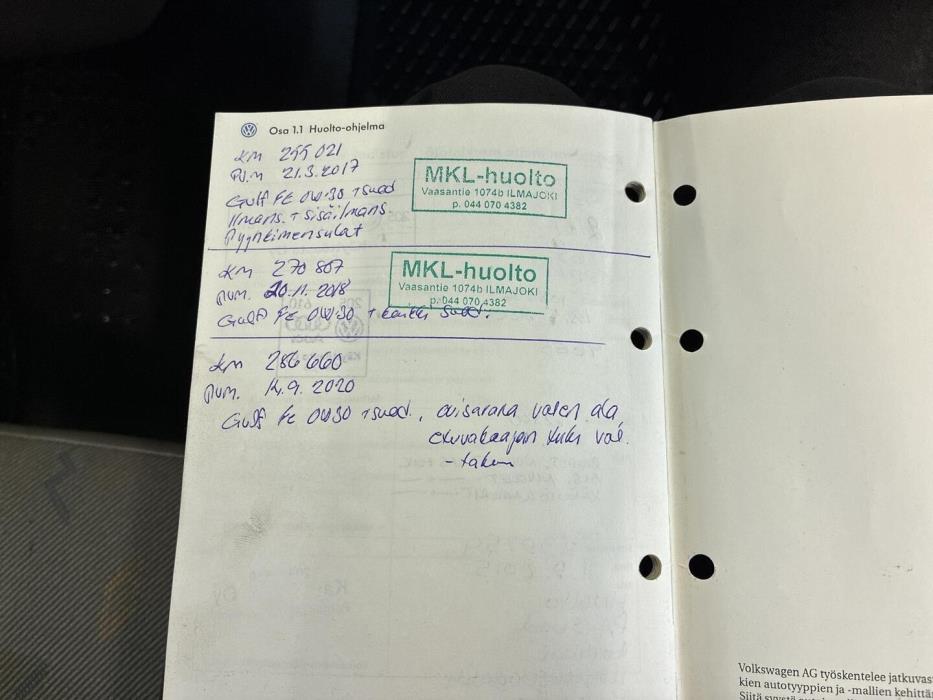 Osa 1.1 Huolto-ohjelma
KM 255 021
PVM 21.3.2017
Gulf FE 0W-30 + suod
Ilmans. + sisäilmans.
Pyyhkimensulat
MKL-huolto
Vaasantie 1074b ILMAJOKI
p. 044 070 4382
KM 270 807
PVM. 20.11.2018
Gulf FE 0W-30 + kaikki suod.
MKL-huolto
Vaasantie 1074b ILMAJOKI
p. 044 070 4382
KM 286 660
PVM. 14.9.2020
Gulf FE 0W30 + suod.
- taken
Volkswagen AG työskentelee jatkuvas
kien autotyyppien ja -mallien kehittä